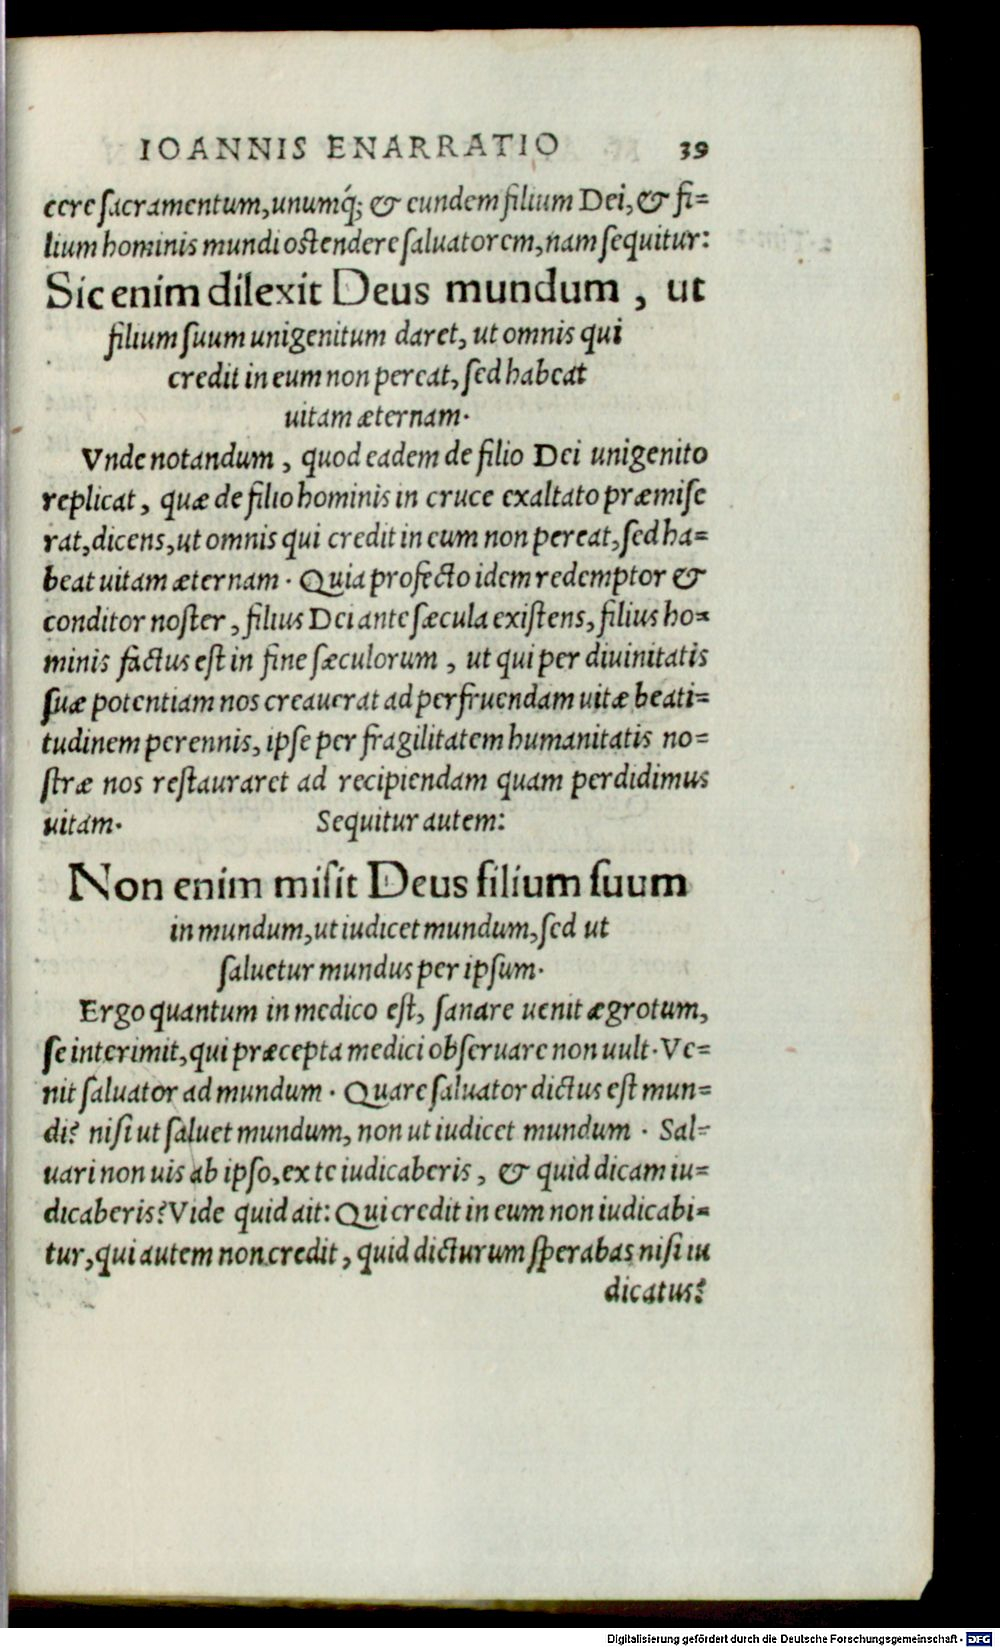 IOANNIS ENARRATIO 39
cere sacramentum, unumq́; & eundem filium Dei, & fi=
lium hominis mundi ostendere saluatorem, nam sequitur:
Sic enim dilexit Deus mundum , ut
filium suum unigenitum daret, ut omnis qui
credit in eum non pereat, sed habeat
uitam æternam.
Vnde notandum , quod eadem de filio Dei unigenito
replicat, quæ de filio hominis in cruce exaltato præmise
rat, dicens, ut omnis qui credit in eum non pereat, sed ha=
beat uitam æternam . Quia profecto idem redemptor &
conditor noster , filius Dei ante sæcula existens, filius ho=
minis factus est in fine sæculorum , ut qui per diuinitatis
suæ potentiam nos creauerat ad perfruendam uitæ beati=
tudinem perennis, ipse per fragilitatem humanitatis no=
stræ nos restauraret ad recipiendam quam perdidimus
uitam. Sequitur autem:
Non enim misit Deus filium suum
in mundum, ut iudicet mundum, sed ut
saluetur mundus per ipsum.
Ergo quantum in medico est, sanare uenit ægrotum,
se interimit, qui præcepta medici obseruare non uult. Ve=
nit saluator ad mundum . Quare saluator dictus est mun=
di? nisi ut saluet mundum, non ut iudicet mundum . Sal=
uari non uis ab ipso, ex te iudicaberis , & quid dicam iu=
dicaberis? Vide quid ait: Qui credit in eum non iudicabi=
tur, qui autem non credit , quid dicturum sperabas nisi iu
dicatus?
Digitalisierung gefördert durch die Deutsche Forschungsgemeinschaft - DFG